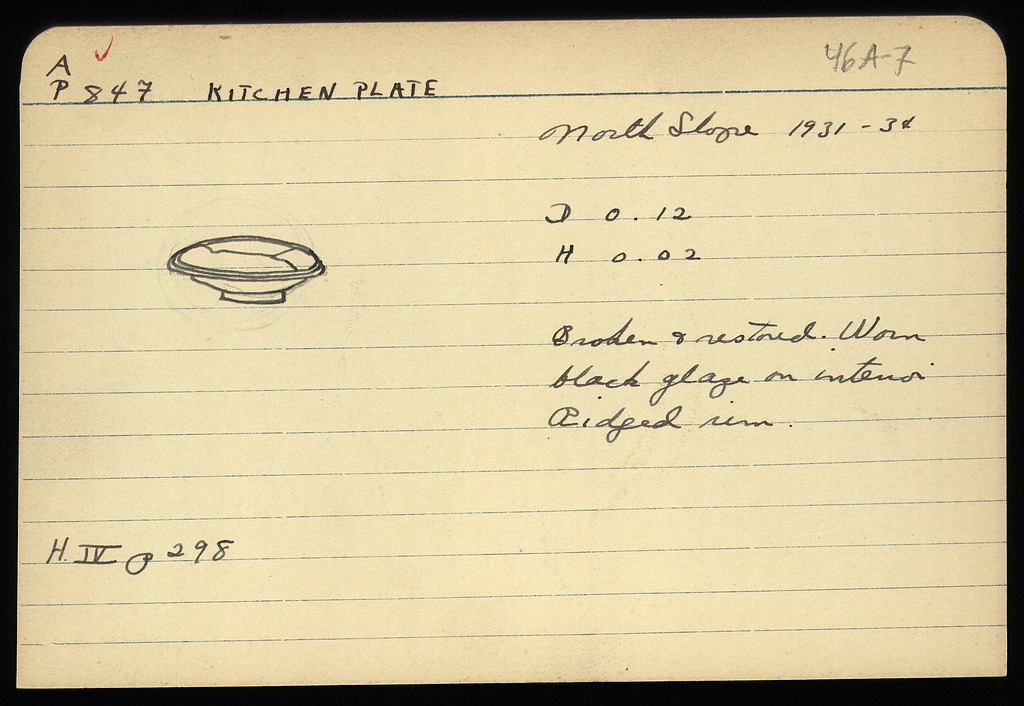 A
P 847 KITCHEN PLATE
46A-7
North Slope 1931-34
D 0.12
H 0.02
Broken & restored. Worn
black glaze on interior
Ridged rim.
H. IV p 298